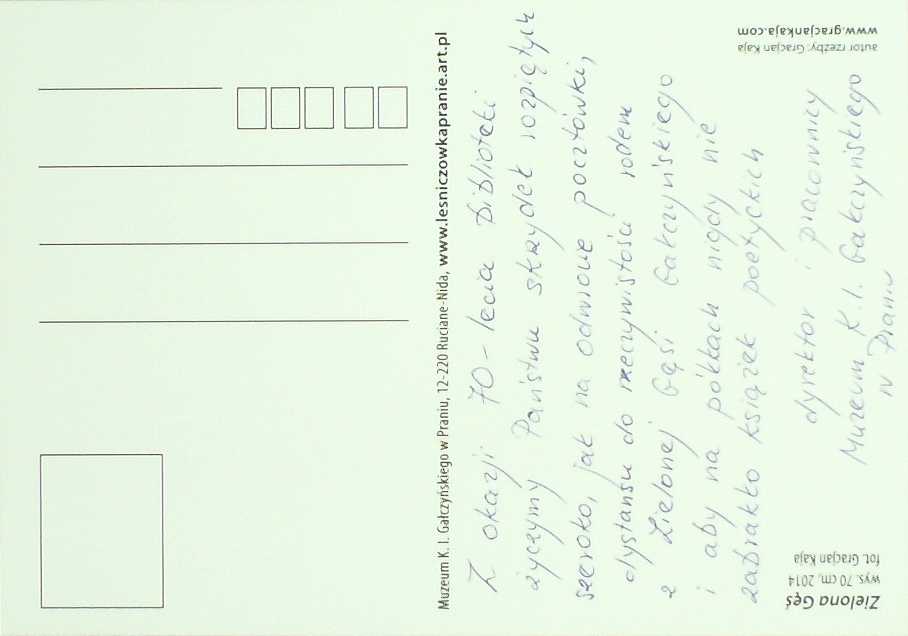 Z okazji 70-lecia Biblioteki
życzymy Państwu skrzydeł rozpiętych
szeroko, jak na odwrocie pocztówki,
dystansu do rzeczywistości rodem
z Zielonej Gęsi Gałczyńskiego
i aby na półkach nigdy nie
zabrakło książek poetyckich
dyrektor i pracownicy
Muzeum K. I. Gałczyńskiego
w Praniu
Muzeum K. I. Gałczyńskiego w Praniu, 12-220 Ruciane-Nida, www.lesniczowkapranie.art.pl
Zielona Gęś
wys. 70 cm, 2014
fot. Gracjan Kaja
autor rzeźby: Gracjan Kaja
www.gracjankaja.com